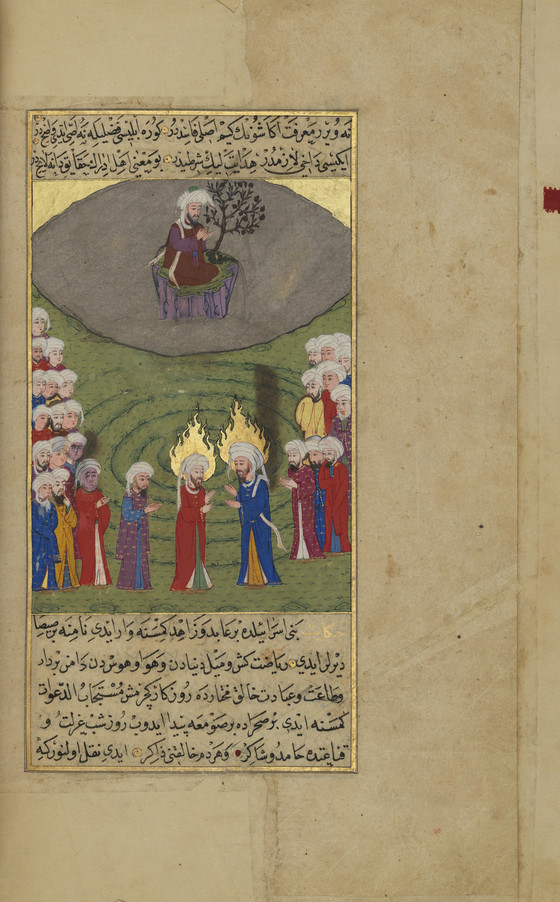 نه ویرر معرفت اکا شونك کیم اصلی فانیدر کوره ابلیسی فضیلیله نه
ایکیسی داخی لازمدر هدایت لیك شرطیدر بو معنی اهل ادراك حقایق
حکایت بنی اسرائیلده بر عابد و زاهد کمسنه وار ایدی نامنه برصیصا
دیرلر ایدی ریاضت کش و میل دنیادن و هوا و هوسدن دامن بردار
و طاعت و عبادت خالق مختارده روزکار کچرمش مستجاب الدعوات
کمسنه ایدی بر صحراده بر صومعه پیدا ایدوب روز شب عزلت و
قناعتده حامد و شاکر و هر دم خالقنی ذاکر ایدی نقل اولنور که